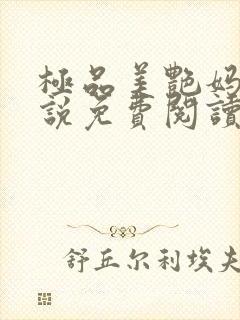 極品美艷妈
説免費閱讀
舒丘尔利埃夫